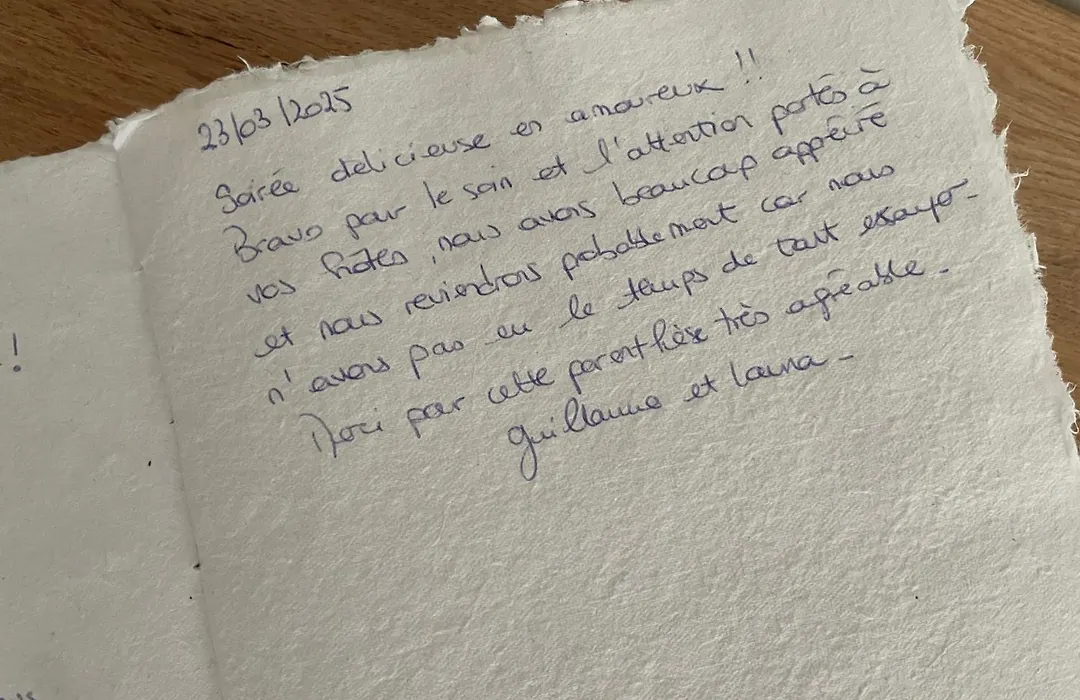 23/03/2025
Soirée délicieuse en amoureux !!
Bravo pour le soin et l'attention portés à
vos hôtes, nous avons beaucoup appécié
et nous reviendrons probablement car nous
n'avons pas eu le temps de tout essayer.
Merci pour cette parenthèse très agréable.
Guillaume et Launa -
!